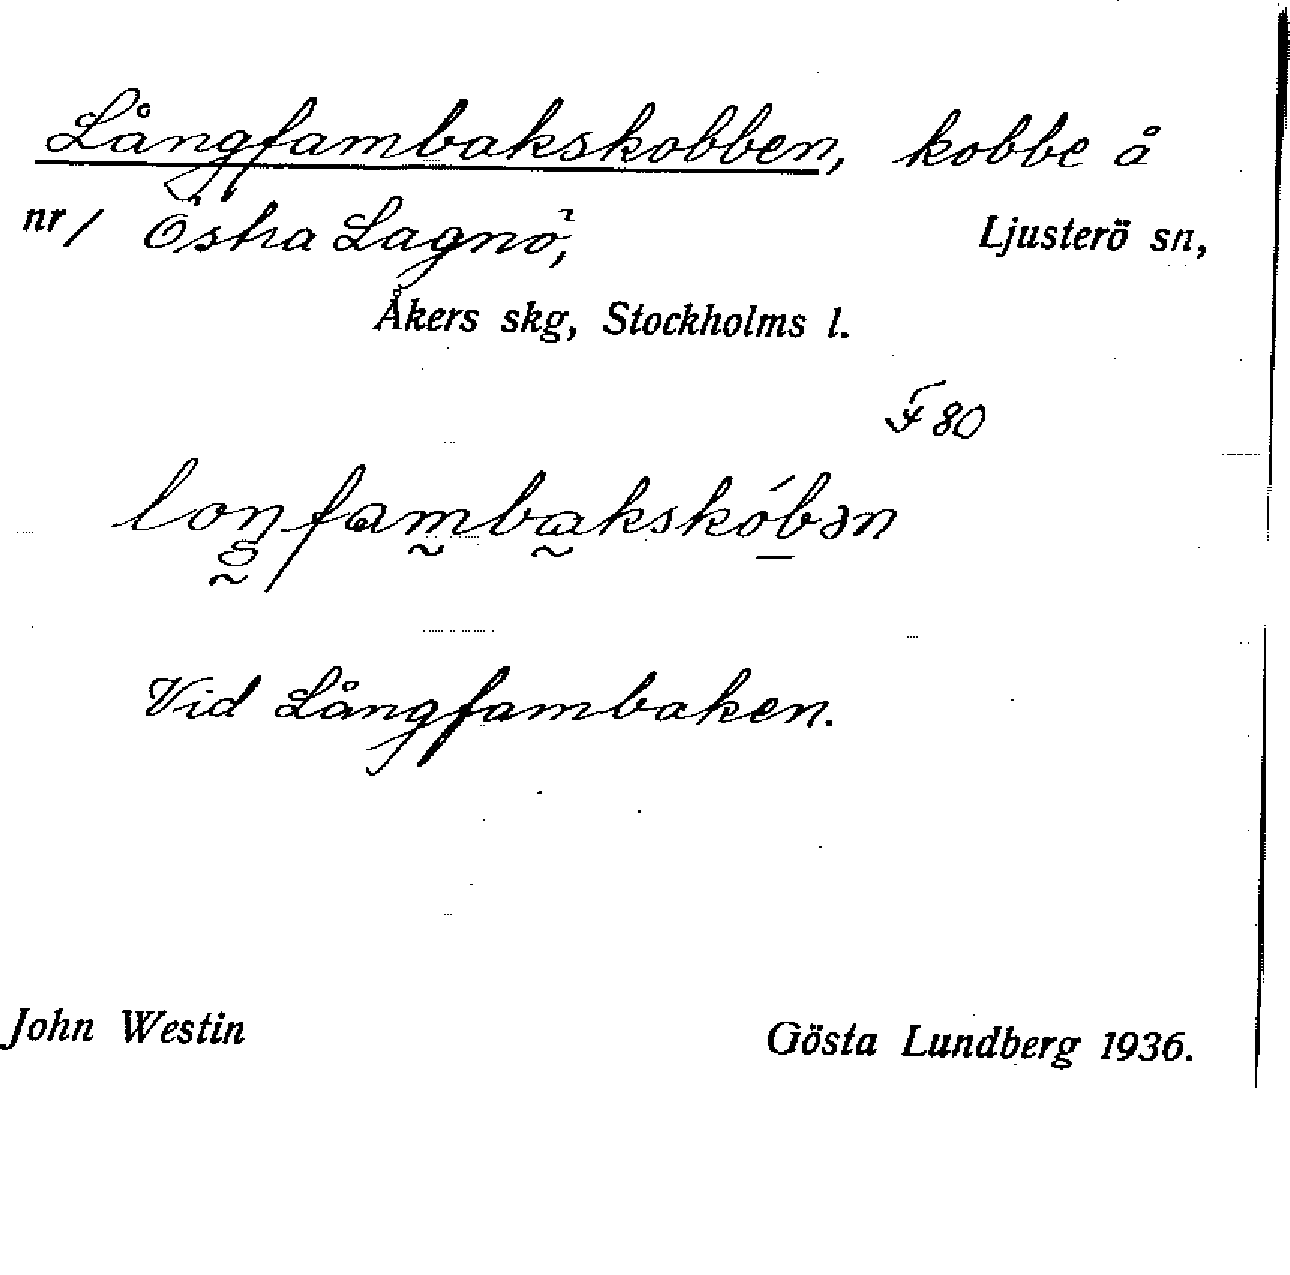 Långfambakskobben, kobbe å
nr/ Östra Lagnö², Ljusterö sn,
Åkers skg, Stockholms l.
F 80
loŋfambakskóbən
Vid Långfambaken.
John Westin Gösta Lundberg 1936.